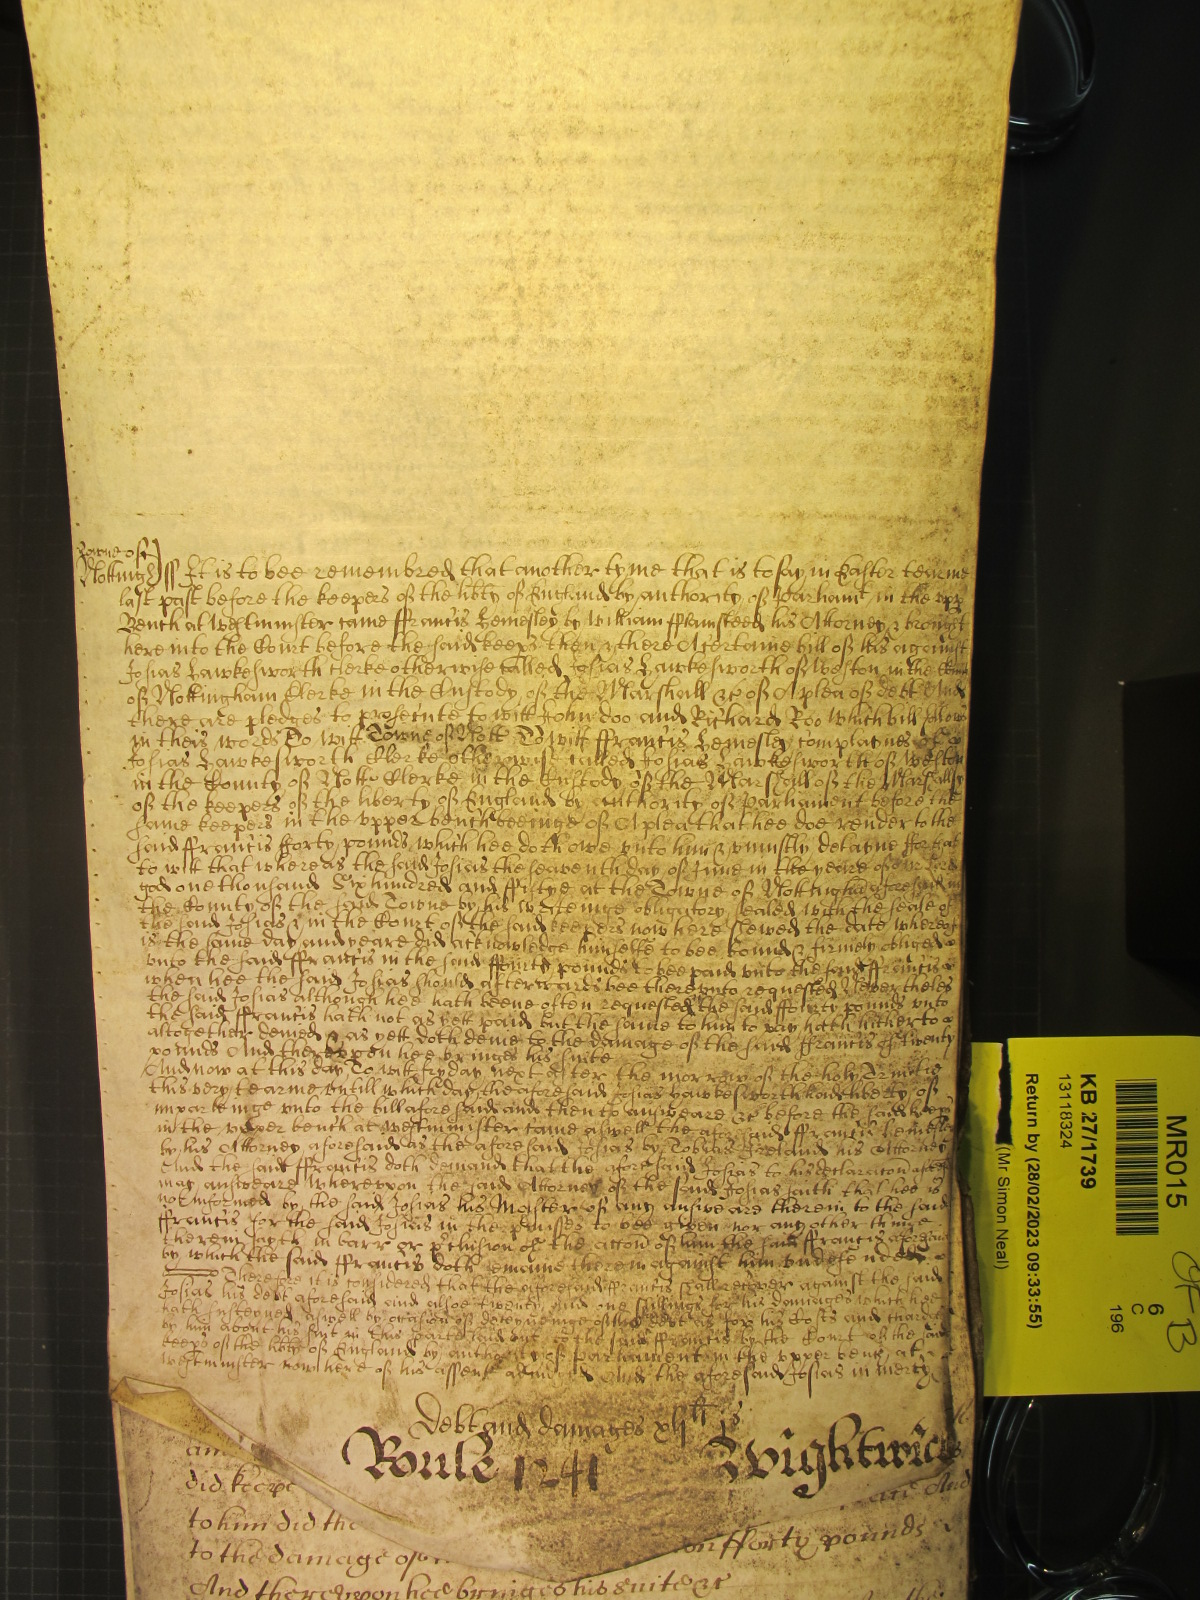 Towne of
Notting
ss It is to bee remembred that another tyme that is to say in Easter tearme
last past before the keepers of the lib̃ty of England by authority of Parliamt in the upp
Bench at Westminster came ffrancis Lemesley by William fflamsteed his Attorney & brought
here into the Court before the said keeps then & there A certaine bill of his against
Josias Hawkesworth Clerke otherwise called Josias Hawkesworth of Weston in the
of Nottingham Clerke in the Custody of the Marshall &c of A plea of debt And
there are pledges to prosecute to witt John doo and Richard Roo Which bill followes
in theis words To witt Towne of Nott To witt ffrancis Lemesley complaines of
Josias Hawkesworth Clerke otherwise called Josias Hawkesworth of Weston
in the County of Nott Clerke in the Custody of the Marshall of the Marshalsy
of the keepers of the liberty of England by authority of Parliament before the
same keepers in the upper bench beeinge of A plea that hee doe render to the
said ffrancis fforty pounds which hee doth owe unto him & uniustly detaine ffor that
to witt that whereas the said Josias the seaventh day of June in the yeare of our Lord
god one thousand Six hundred and ffiftye at the Towne of Nottingham aforesaid in
the County of the said Towne by his writeinge obligatory sealed with the seale of
the said Josias & in the Court of the said keepers now here shewed the date whereof
is the same day and yeare did acknowledge himselfe to bee bound & firmely obliged
unto the said ffrancis in the said fforty pounds to bee paid unto the said ffrancis
when hee the said Josias should afterwards bee thereunto requested Neverthelés
the said Josias although hee hath beene often requested the said fforty pounds unto
the said ffrancis hath not as yett paid but the same to him to pay hath hitherto
altogether denied & as yett doth denie to the damage of the said ffrancis of Twenty
pounds And thereupon hee bringes his suite
And now at this day To witt fryday next after the morrow of the holy Trinitie
this very tearme untill which day the aforesaid Josias Hawkesworth had liberty of
imparleinge unto the bill aforesaid and then to answeare &c before the said keeps
in the upper bench at westminster came aswell the aforesaid ffrancis Lemesley
by his Attorney aforesaid as the aforesaid Josias by Tobias his Attorney
And the said ffrancis doth demand that the aforesaid Josias to his declaracon aforesd
may answeare whereupon the said Attorney of the said Josias saith that hee is
not informed by the said Josias his Master of any answeare therein to the said
ffrancis for the said Josias in the p̃misses to bee given nor any other thinge
therein saith in barr or p̃clusion of the accon of him the said ffrancis aforesaid
by which the said ffrancis doth remaine therein against him undefended
Therefore it is considered that the aforesaid ffrancis shall recover against the said
Josias his debt aforesaid and alsoe twenty and one shillings for his damages which hee
hath susteyned aswell by occasion of deteyneinge of the debt as for his Costs and charges
by him about his suit in this parte laid out to the said ffrancis by the Court of the said
keeps of the lib̃ty of England by authority of parliament in the upper bench at
Westminster now here of his assent adiudged And the aforesaid Josias in mercy
Debt and damages xlj li js
Roule 1241 Wightwick
did keepe
to him did the
and
to the damage of
of fforty pounds
And thereupon hee bringes his suite &c
MR015
6
C
196
KB 27/1739
13118324
Return by (28/02/2023 09:33:55)
(Mr Simon Neal)